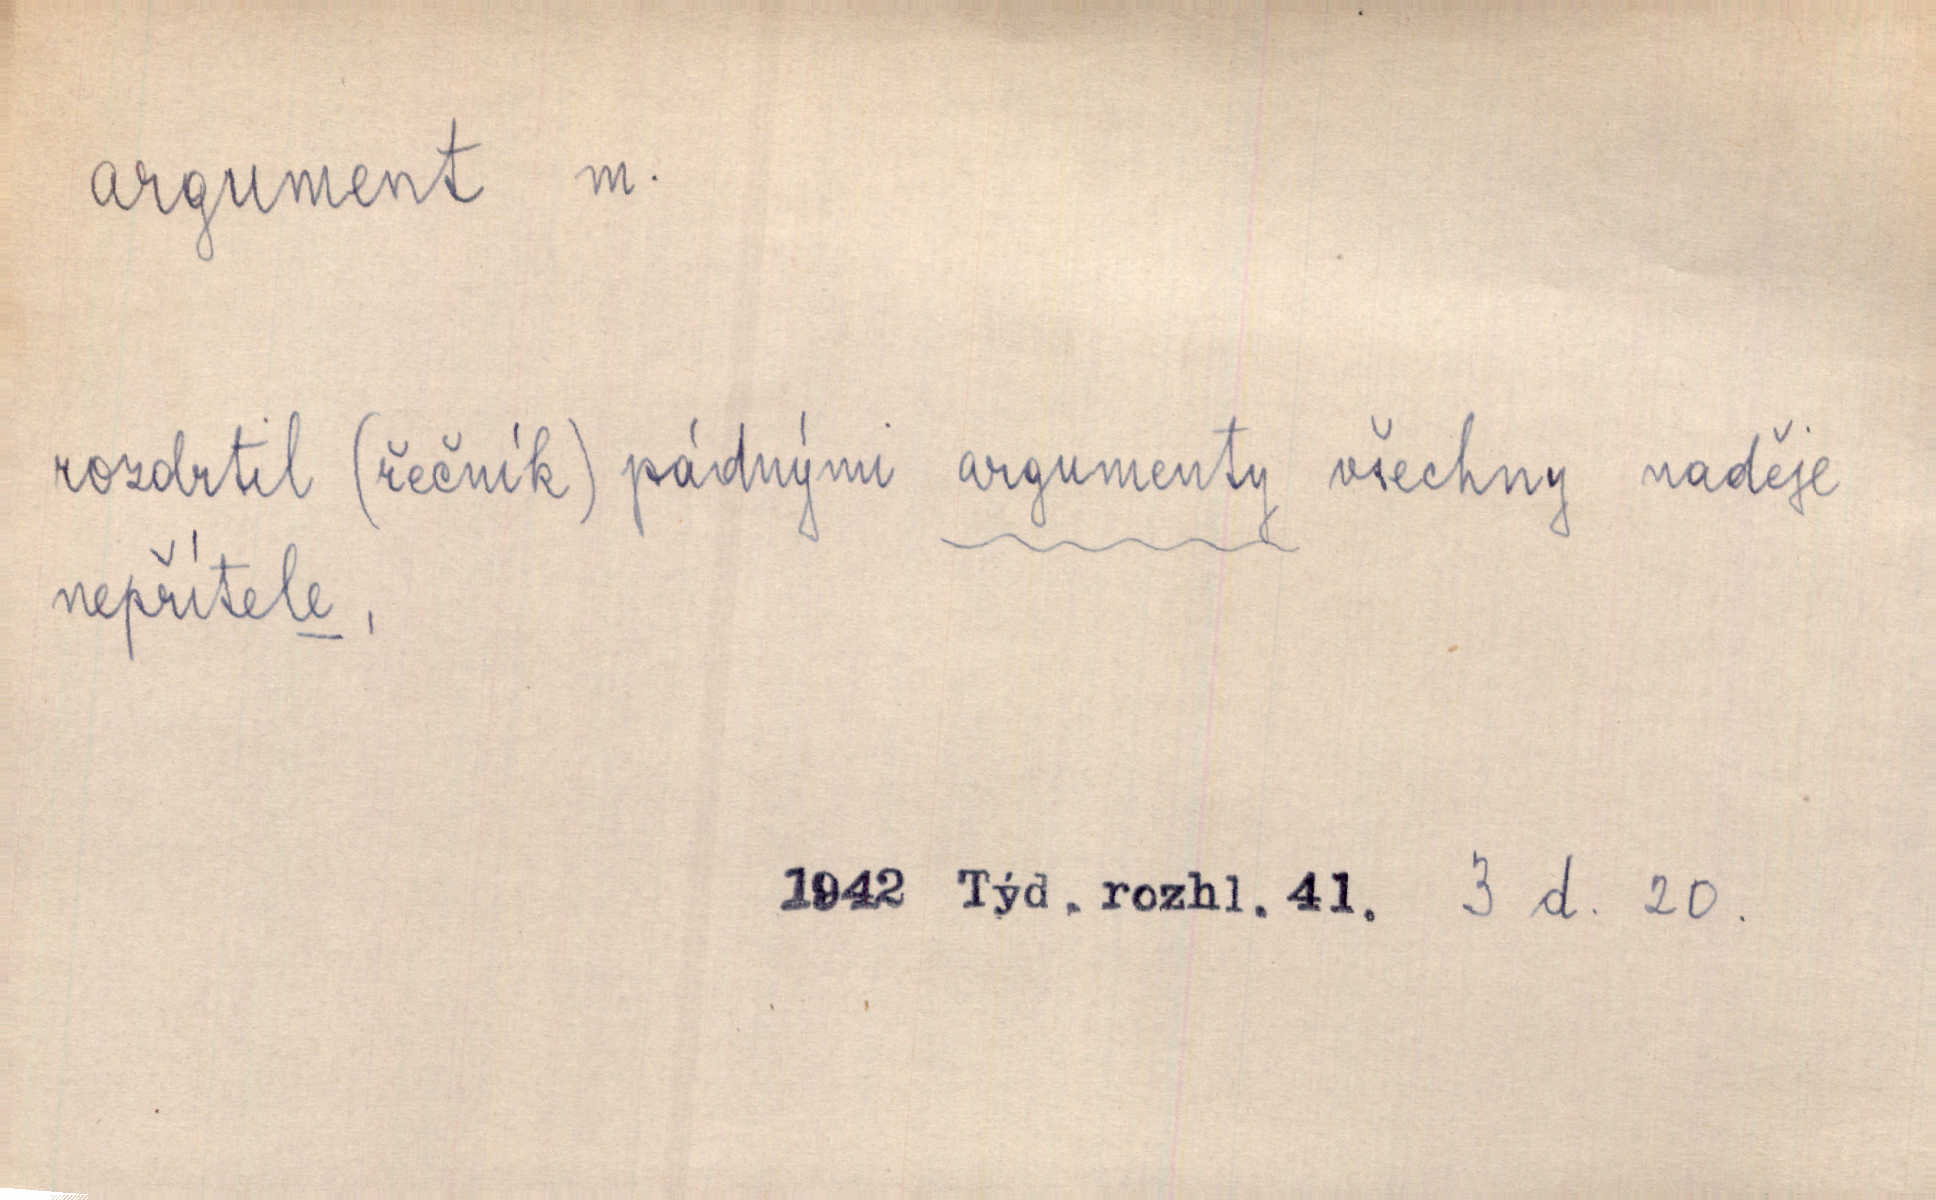 argument m.
rozdrtil (řečník) pádnými argumenty všechny naděje
nepřítele,
1942 Týd. rozhl. 41. 3 d. 20.